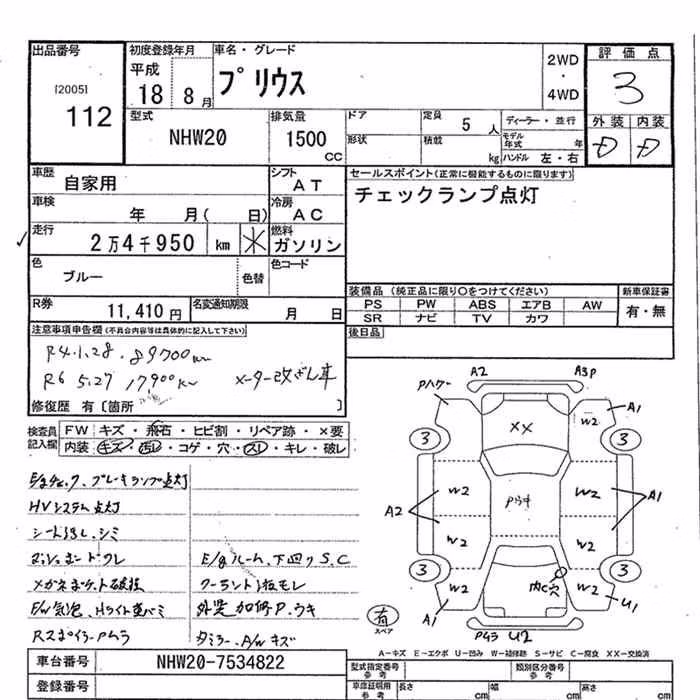 出品番号 初度登録年月 車名・グレード 評価点
[2005] 112
平成 18 8月
プリウス
2WD・4WD
3
型式 NHW20
排気量 1500 CC
ドア 形状
定員 5人
積載 kg
ディーラー・並行
モデル年式 年
ハンドル 左・右
外装 内装
D D
車歴 自家用
シフト AT
セールスポイント(正常に機能するものに限ります)
チェックランプ点灯
車検 年 月( 日)
冷房 AC
走行 2万4千950 km ＊
燃料 ガソリン
色 ブルー 色替
色コード
R券 11,410円
名変通知期限 月 日
装備品(純正品に限り○をつけてください)
新車保証書
PS PW ABS エアB AW
有・無
SR ナビ TV カワ
後日品
注意事項申告欄(不具合内容等は具体的に記入して下さい)
R4.1.28. 89700km
R6 5.27 17,900km メーター改ざん車
修復歴 有〔箇所 〕
検査員記入欄
FW キズ・飛石・ヒビ割・リペア跡・×要
内装 キズ・汚レ・コゲ・穴・スレ・キレ・破レ
E/gチェック、ブレーキランプ点灯
HVシステム点灯
シートヨゴレ、シミ
E/gルーム、下回りS.C
クーラント漏モレ
F/W気泡、Hライト黄バミ
A2 A3P
A1
W2
XX
3 3
W2 W2
A2 A1
W2 W2
3 3
W2 W2
内C穴
A1 U1
U2
有 スペア
A－キズ E－エクボ U－凹み W－補修跡 S－サビ C－腐食 XX－交換済
車台番号 NHW20-7534822
登録番号
型式指定番号 参考
類別区分番号 参考
車庫証明用 参考
長さ cm 幅 cm 高さ cm